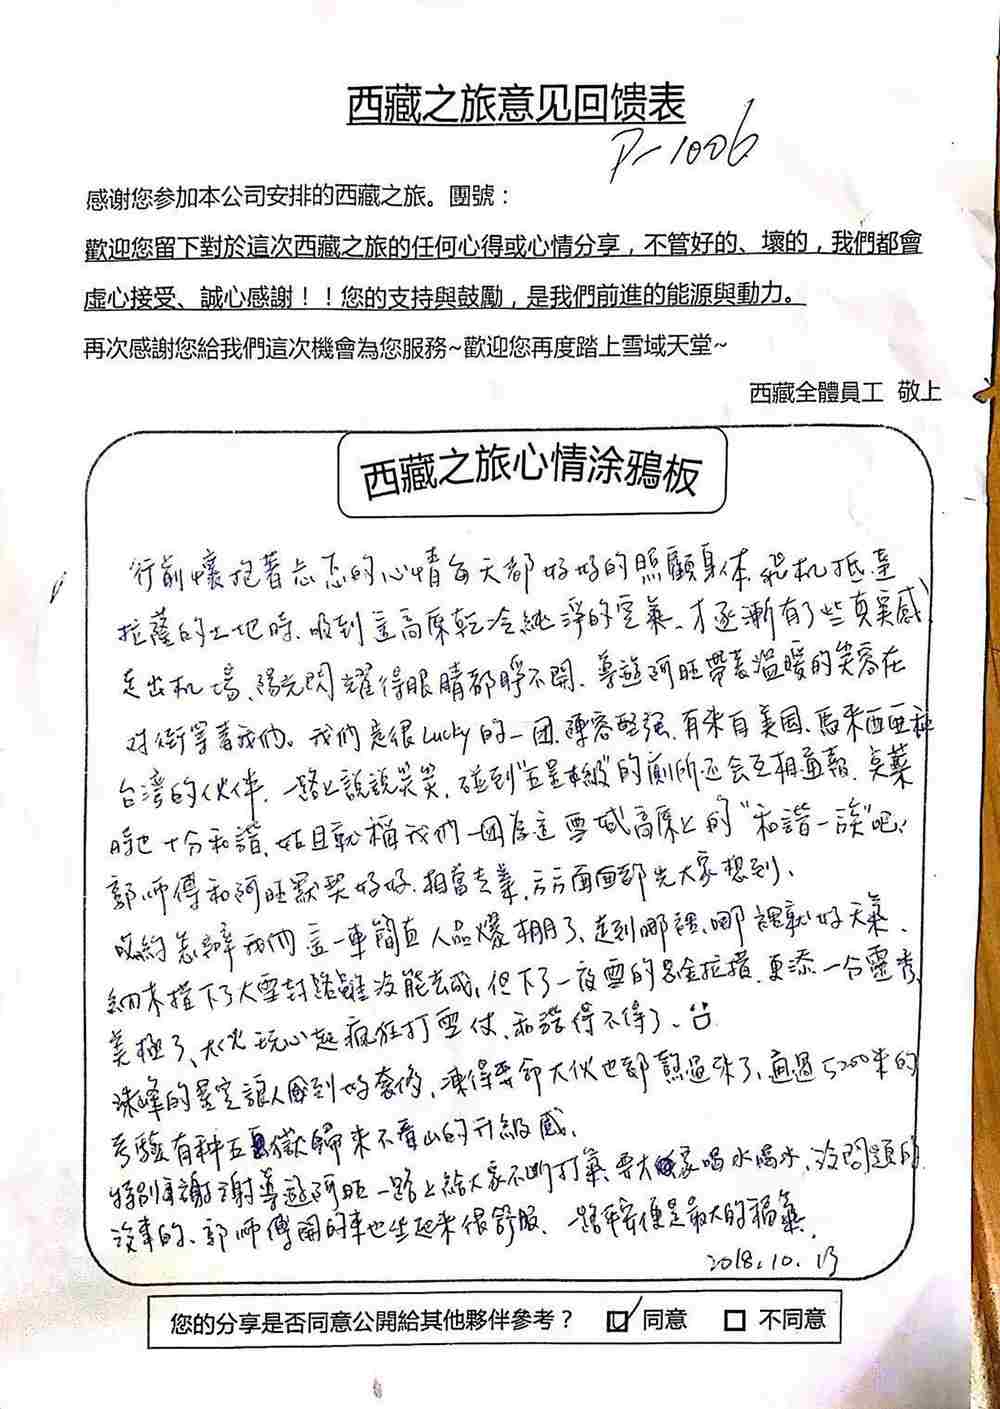 西藏之旅意见回馈表
P-1006
感谢您参加本公司安排的西藏之旅。團號：
歡迎您留下對於這次西藏之旅的任何心得或心情分享，不管好的、壞的，我們都會
虛心接受、誠心感謝！！您的支持與鼓勵，是我們前進的能源與動力。
再次感謝您給我們這次機會為您服務~歡迎您再度踏上雪域天堂~
西藏全體員工 敬上
西藏之旅心情涂鴉板
行前懷抱著忐忑的心情每天都好好的照顧身体.飛机抵達
拉薩的土地時.吸到這高原乾冷純淨的空氣、才逐漸有了些真实感
走出机場、陽光閃耀得眼睛都睜不開.導遊阿旺帶著溫暖的笑容在
对街等著我們。我們是很Lucky的一团.陣容堅强.有來自美国.馬來西亚和
台灣的伙伴.一路上說說笑笑.碰到"五星級"的廁所还会互相通報.
時也十分和諧.姑且就稱我們一团為這雪域高原上的"和諧一族"吧!
郭师傅和阿旺默契好好.相當専業.方方面面都先大家想到、
我們這一車簡直人品爆棚了、走到哪裡、哪裡就好天氣.
納木措下了大雪封路雖沒能去成,但下了一夜雪的思金拉措.更添一分靈秀,
美極了、大伙玩心起瘋狂打雪仗、和諧得不得了.
珠峰的星空讓人感到好奢侈,凍得要命大伙也都熬過來了,通過5200米的
考驗有种五嶽歸來不看山的升級感、
特別再謝謝導遊阿旺一路上給大家不断打氣.要大家喝水喝水、沒問題的
沒事的、郭师傅開的車也坐起來很舒服.一路平安便是最大的福氣.
2018.10.13
您的分享是否同意公開給其他夥伴參考？ ☑ 同意 □ 不同意